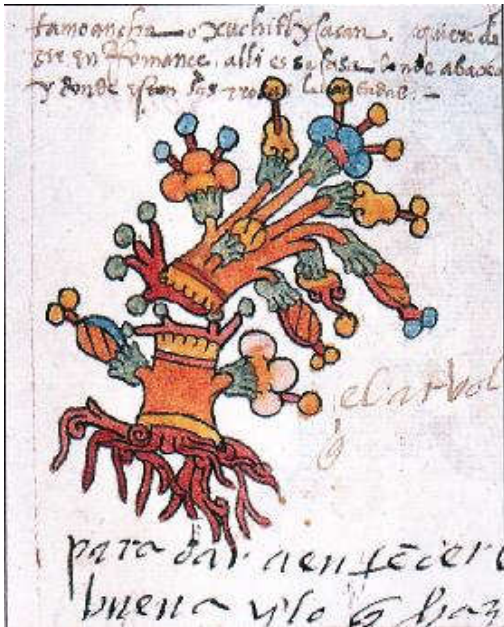 tamoancha o xuchitlycacan. quiere de
zir en Romance. alli es su casa donde abaxo
y donde estan sus rosas levantadas. –
el arvol
q̃
para dar a entēder
buena y lo q̃ haz